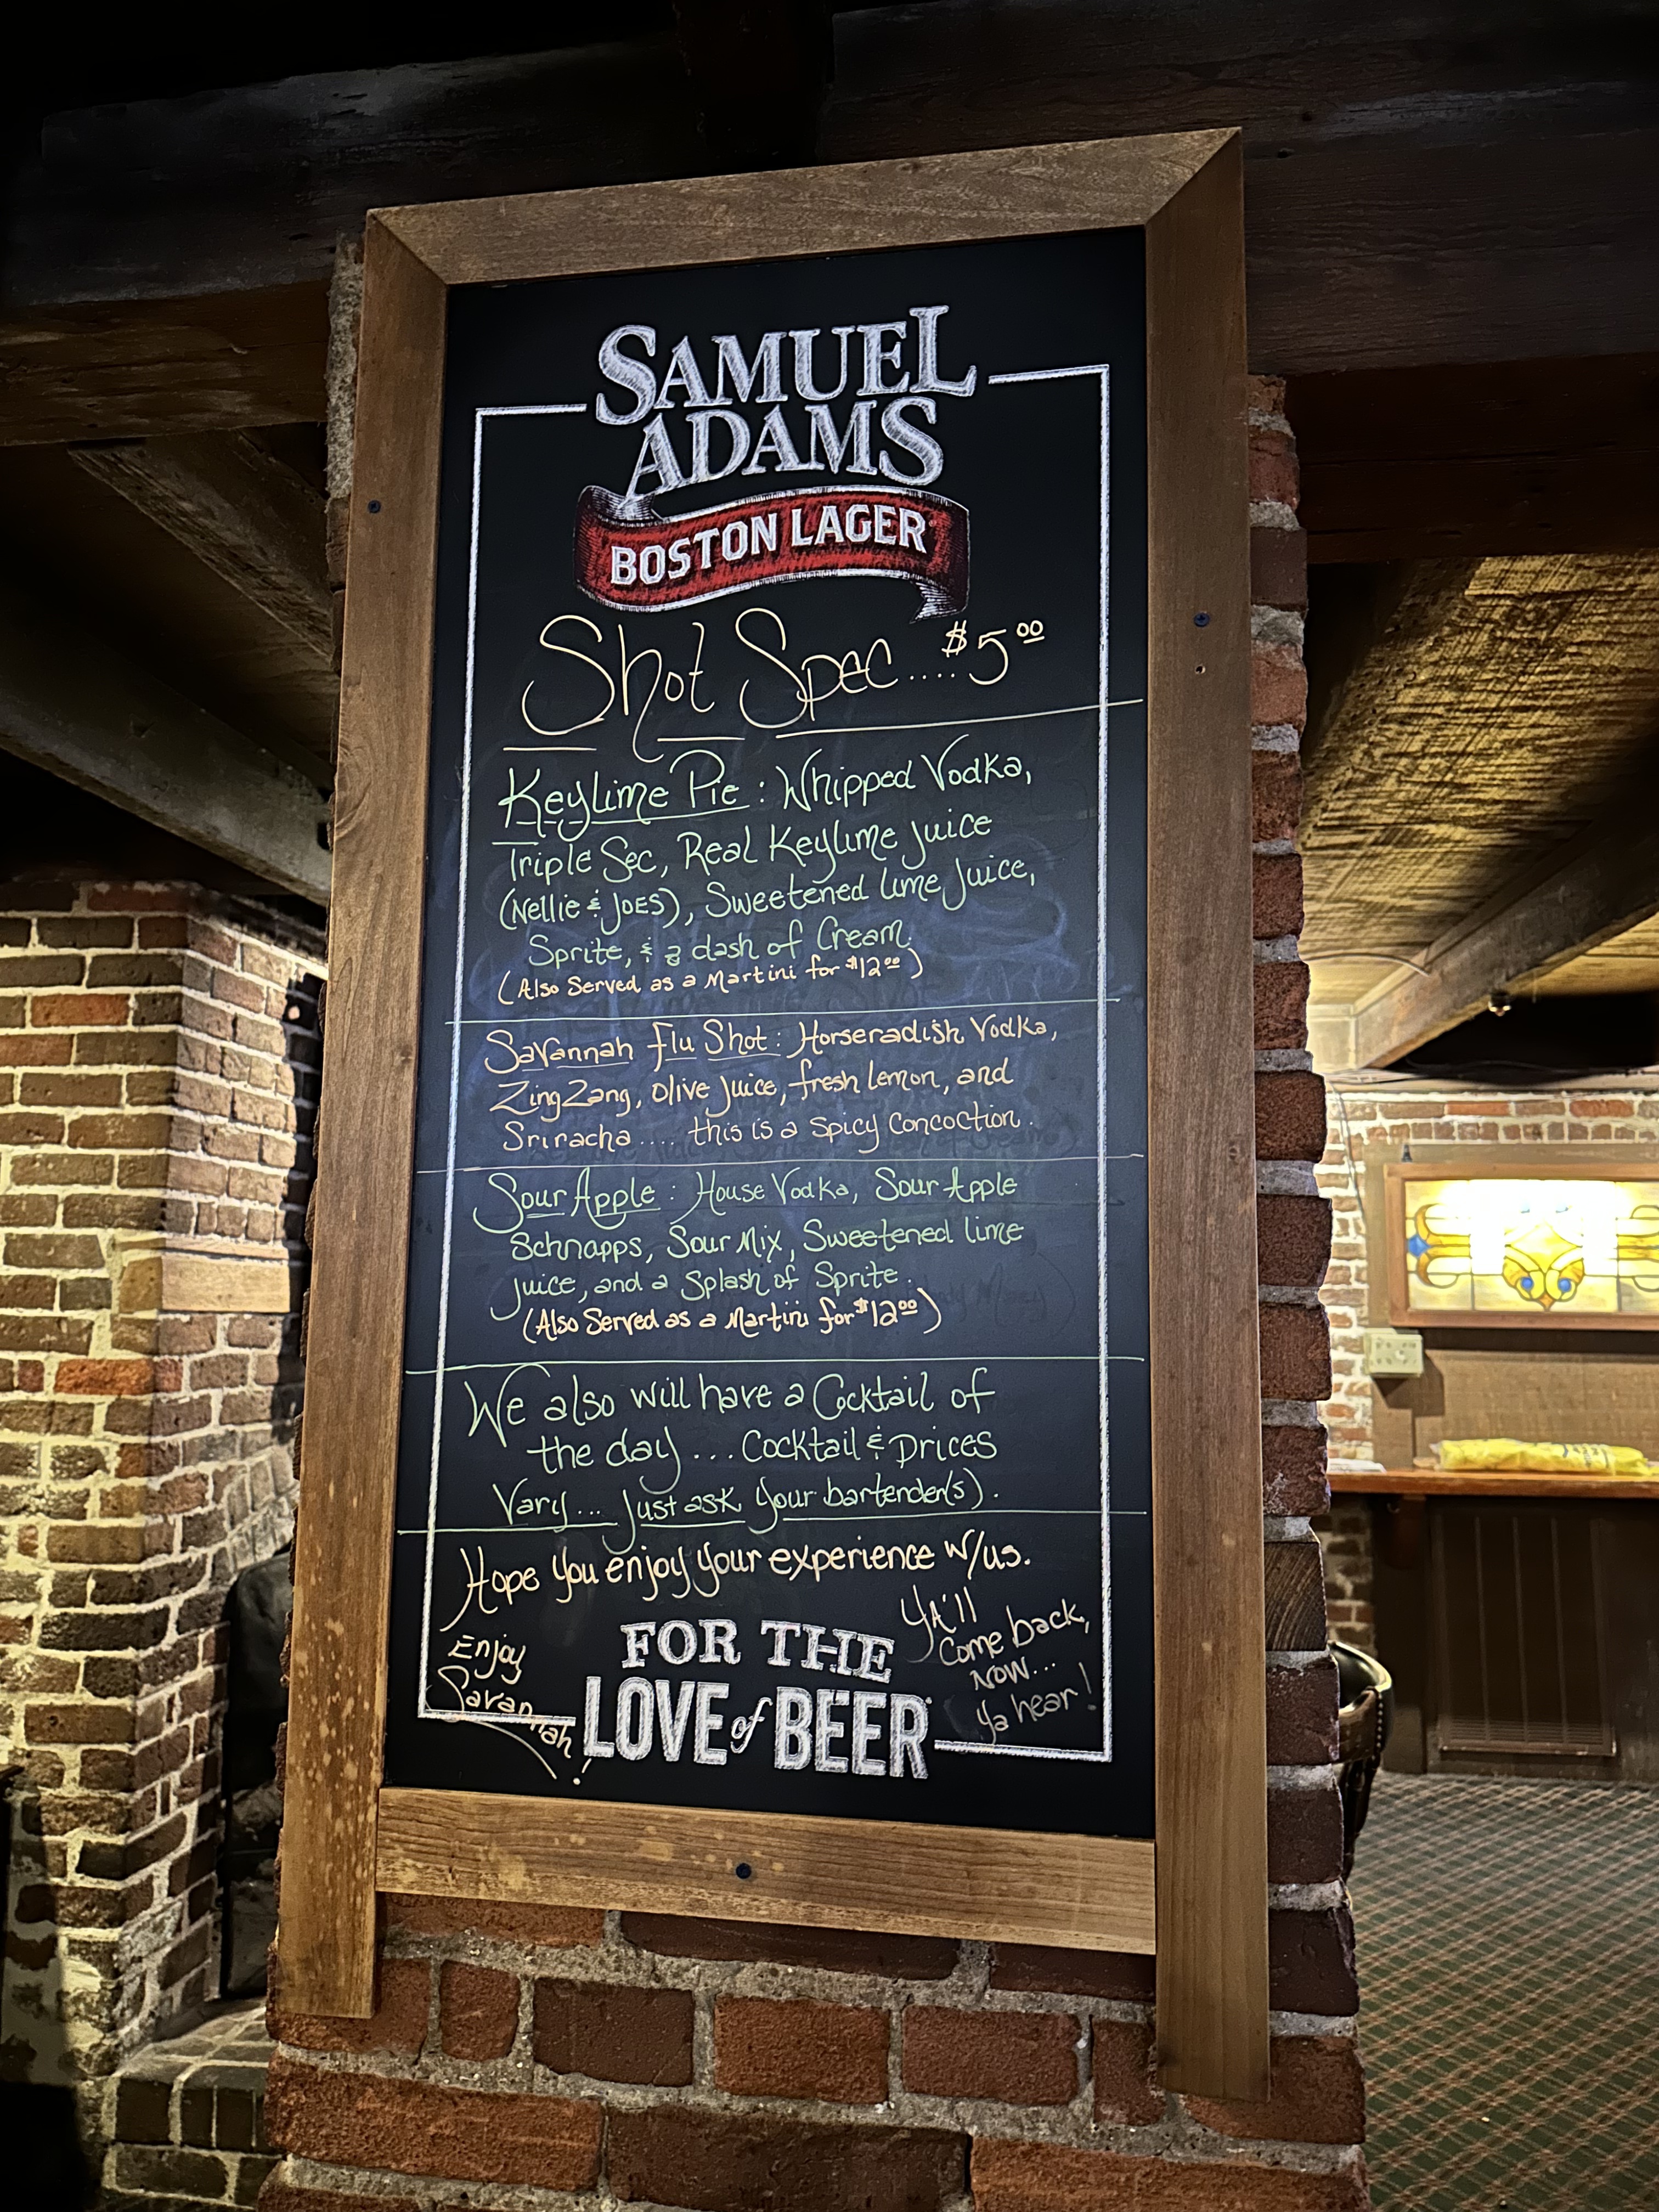 SAMUEL
ADAMS
BOSTON LAGER
Shot Spec....$5.00
Keylime Pie: Whipped Vodka,
Triple Sec, Real Keylime Juice
(Nellie & JOES), Sweetened lime Juice,
Sprite, & a dash of Cream.
(Also Served as a Martini for $12.00)
Savannah Flu Shot: Horseradish Vodka,
Zing Zang, olive Juice, fresh lemon, and
Sriracha .... this is a Spicy Concoction.
Sour Apple: House Vodka, Sour Apple
Schnapps, Sour Mix, Sweetened lime
juice, and a Splash of Sprite.
(Also Served as a Martini for $12.00)
We also will have a Cocktail of
the day... Cocktail & Prices
Vary... Just ask your bartender(s).
Hope you enjoy your experience w/us.
Enjoy
Savannah!
FOR THE
LOVE of BEER
YA'll
Come back,
NOW...
Ya hear!